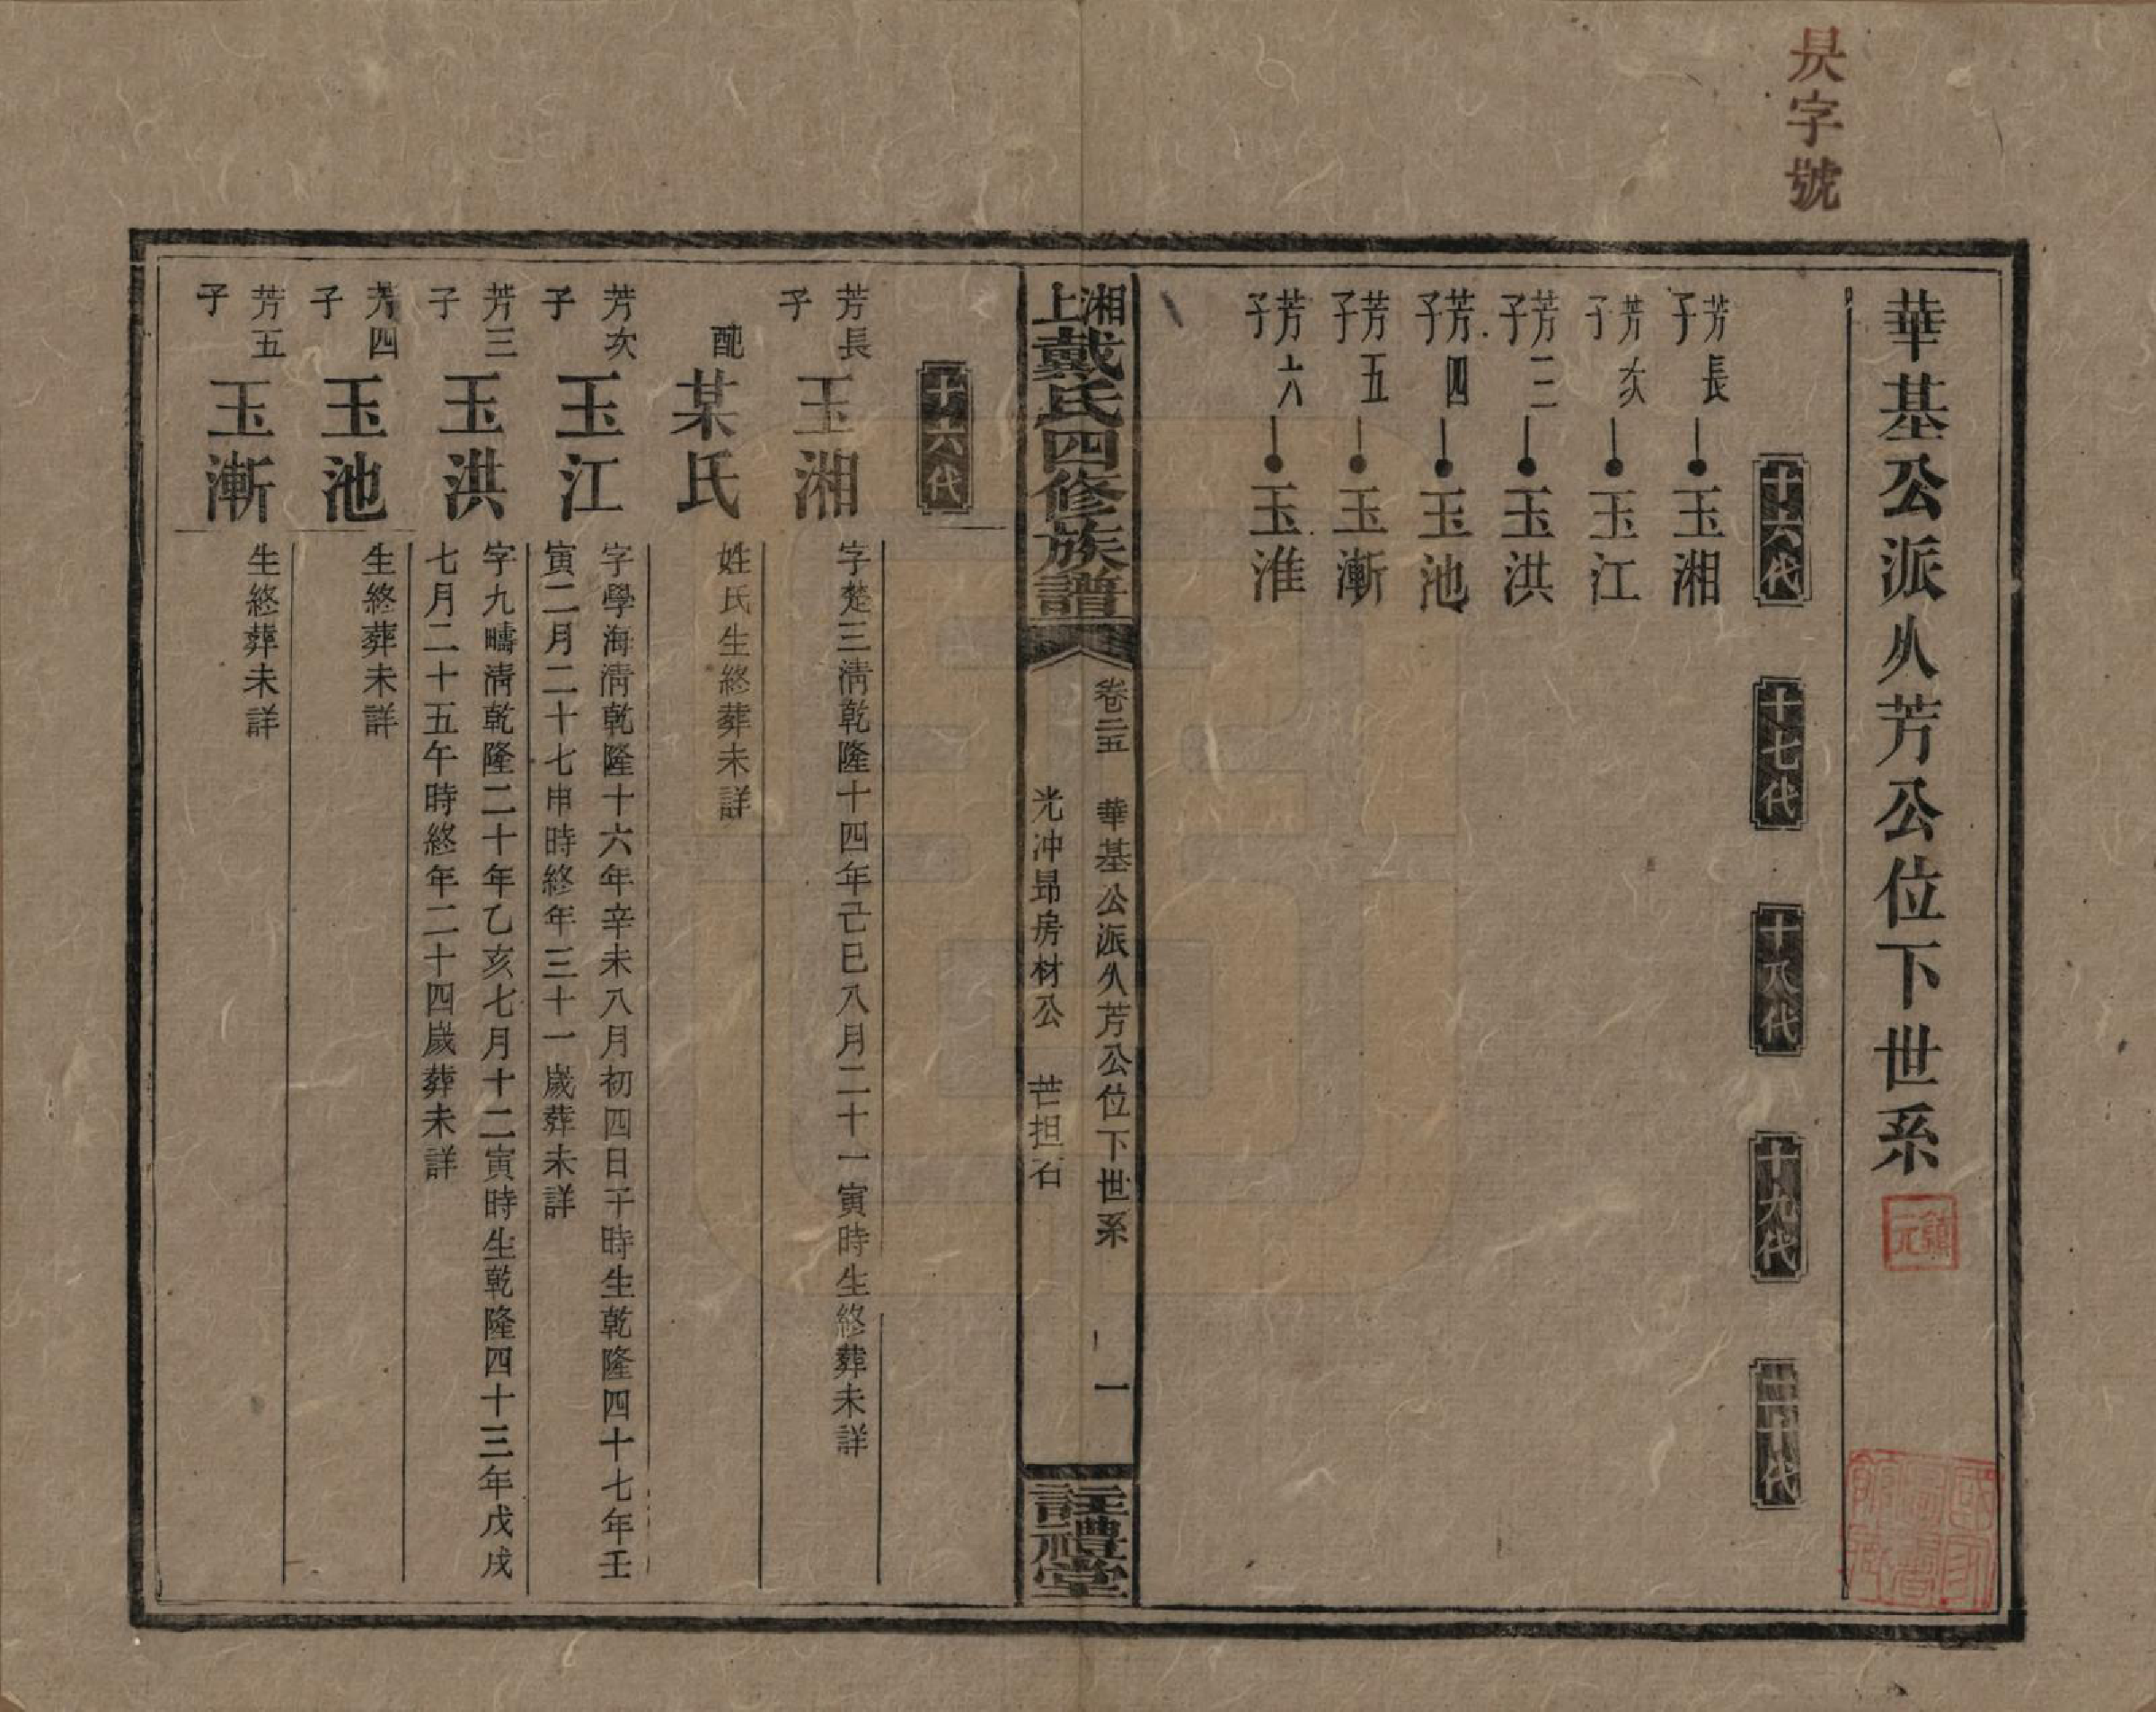 昃字號
華基公派火芳公位下世系
十六代
十七代
十八代
十九代
二十代
芳長子
玉湘
芳次子
玉江
芳三子
玉洪
芳四子
玉池
芳五子
玉漸
芳六子
玉淮
湘上戴氏四修族譜
卷二十五
華基公派火芳公位下世系
一
光冲昻房材公 芒担石
註禮堂
十六代
芳長子
玉湘
字楚三淸乾隆十四年己巳八月二十一寅時生終葬未詳
配
某氏
姓氏生終葬未詳
芳次子
玉江
字學海淸乾隆十六年辛未八月初四日子時生乾隆四十七年壬
寅二月二十七申時終年三十一歲葬未詳
芳三子
玉洪
字九疇淸乾隆二十年乙亥七月十二寅時生乾隆四十三年戊戌
七月二十五午時終年二十四歲葬未詳
芳四子
玉池
生終葬未詳
芳五子
玉漸
生終葬未詳